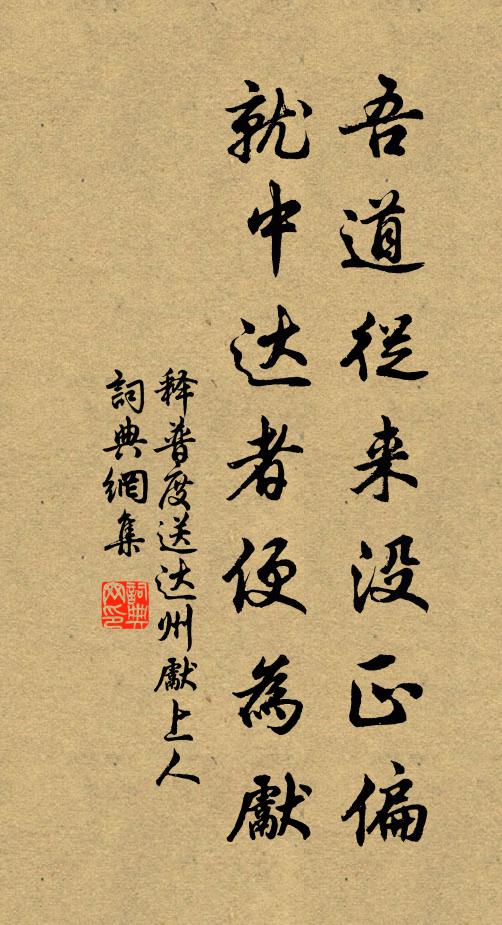 吾道從来没正偏
就中达者便為獻
释普度送达州獻上人
詞典網集
詞典网印